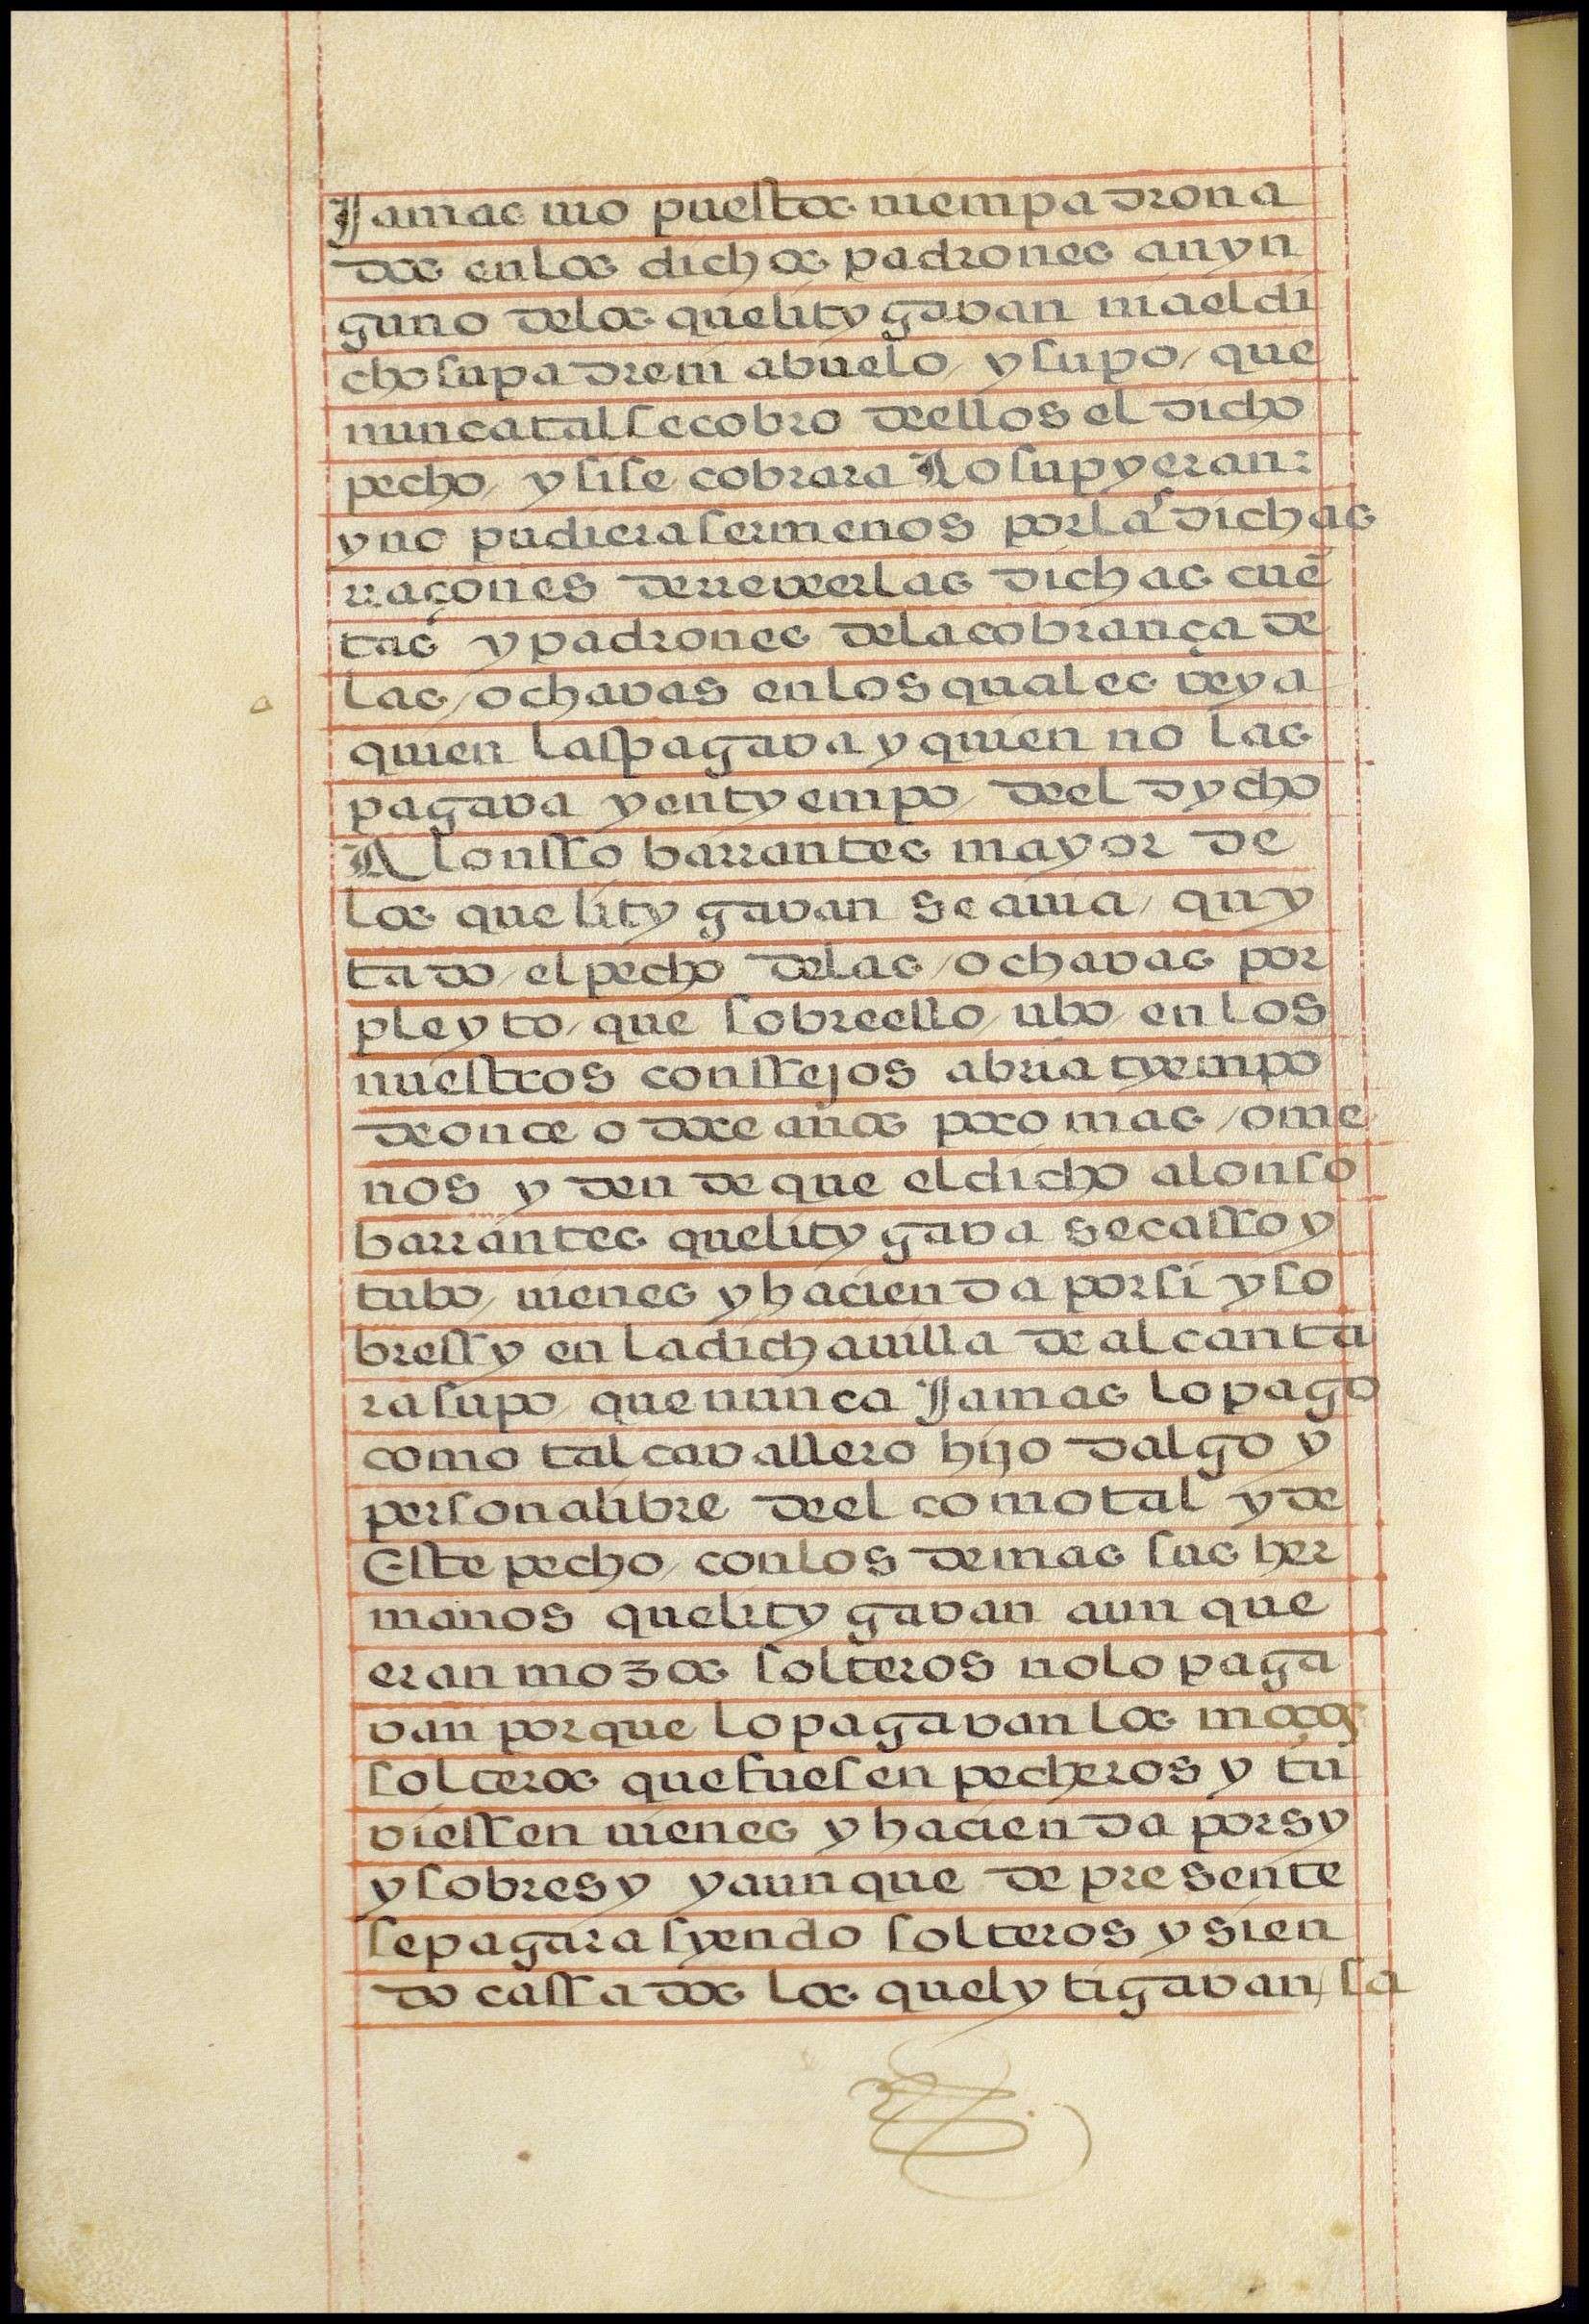 Jamas vio puestos niempadrona
dos enlos dichos padrones anyn
guno delos quelitygavan niaeldi
chosupadreni abuelo / ysupo / que
nuncatalsecobro deellos el dicho
pecho / ysise cobrara Losupyeran:
yno pudierasermenos porlas dichas
rraçones derreveerlas dichas cuē
tas ypadrones delacobrança de
las / ochavas enlosquales veya
quien laspagava yquien no las
pagava yentyempo / deel dycho
Alonsso barrantes mayor de
los quelitygavan seavia / quy
tado / elpecho delas / ochavas por
pleyto / que sobreello / ubo / enlos
nuestros conssejos abria tyempo
deonce o doce años poco mas / ome
nos y dende que eldicho alonso
barrantes quelitygava secasso y
tubo / vienes yhacienda porsi yso
bressy enladichavilla de alcanta
rasupo / quenunca Jamas lopago
como talcavallero hijo dalgo y
personalibre deel comotal yde
Este pecho / conlos demas sus her
manos quelitygavan aunque
eran mozos solteros nolopaga
van porque lopagavanlos moços
solteros quefuesen pecheros y tu
viessen vienes yhacienda porsy
ysobresy yaunque de presente
sepagara syendo solteros ysien
do cassados los quelytigavan / sa